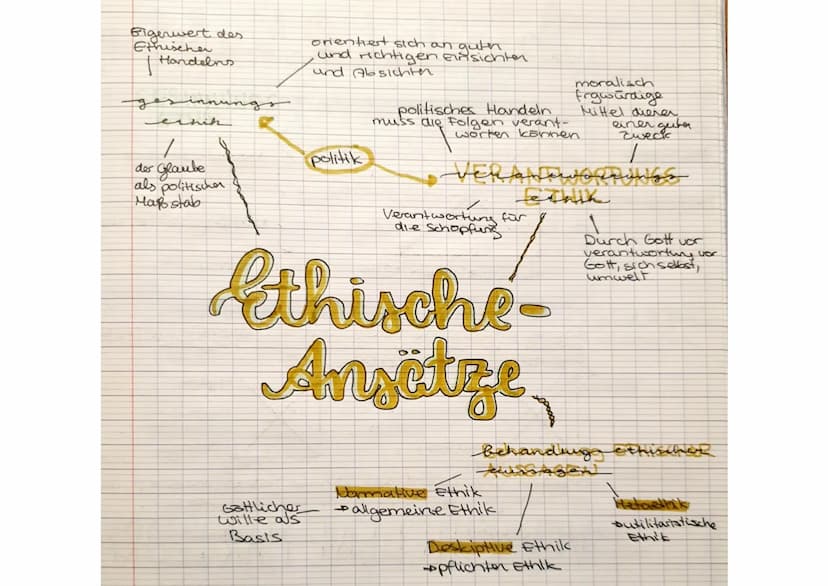 Eigenwert des
Ethischen
Handelns
orientiert sich an guten
und richtigen Einsichten
und Absichten
gesinnungs
ethik
der Glaube
als politischer
Maßstab
politik
politisches Handeln
muss die Folgen verant-
worten können
moralisch
frgwürdige
Mittel dienen
einer guten
Zweck
VERANTWORTUNGS
ETHIK
Verantwortung für
die Schöpfung
Durch Gott vor
verantwortung vor
Gott, sich selbst,
umwelt
Ethische-
Ansätze
Behandlung ETHISCHER
AUSSAGEN
Normative Ethik
→ allgemeine Ethik
Göttlicher
Wille als
Basis
Deskiptive Ethik
→ pflichten Ethik
Metaethik
→ utilitaristische
Ethik